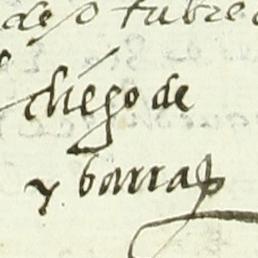 de otubre
diego de
ybarra